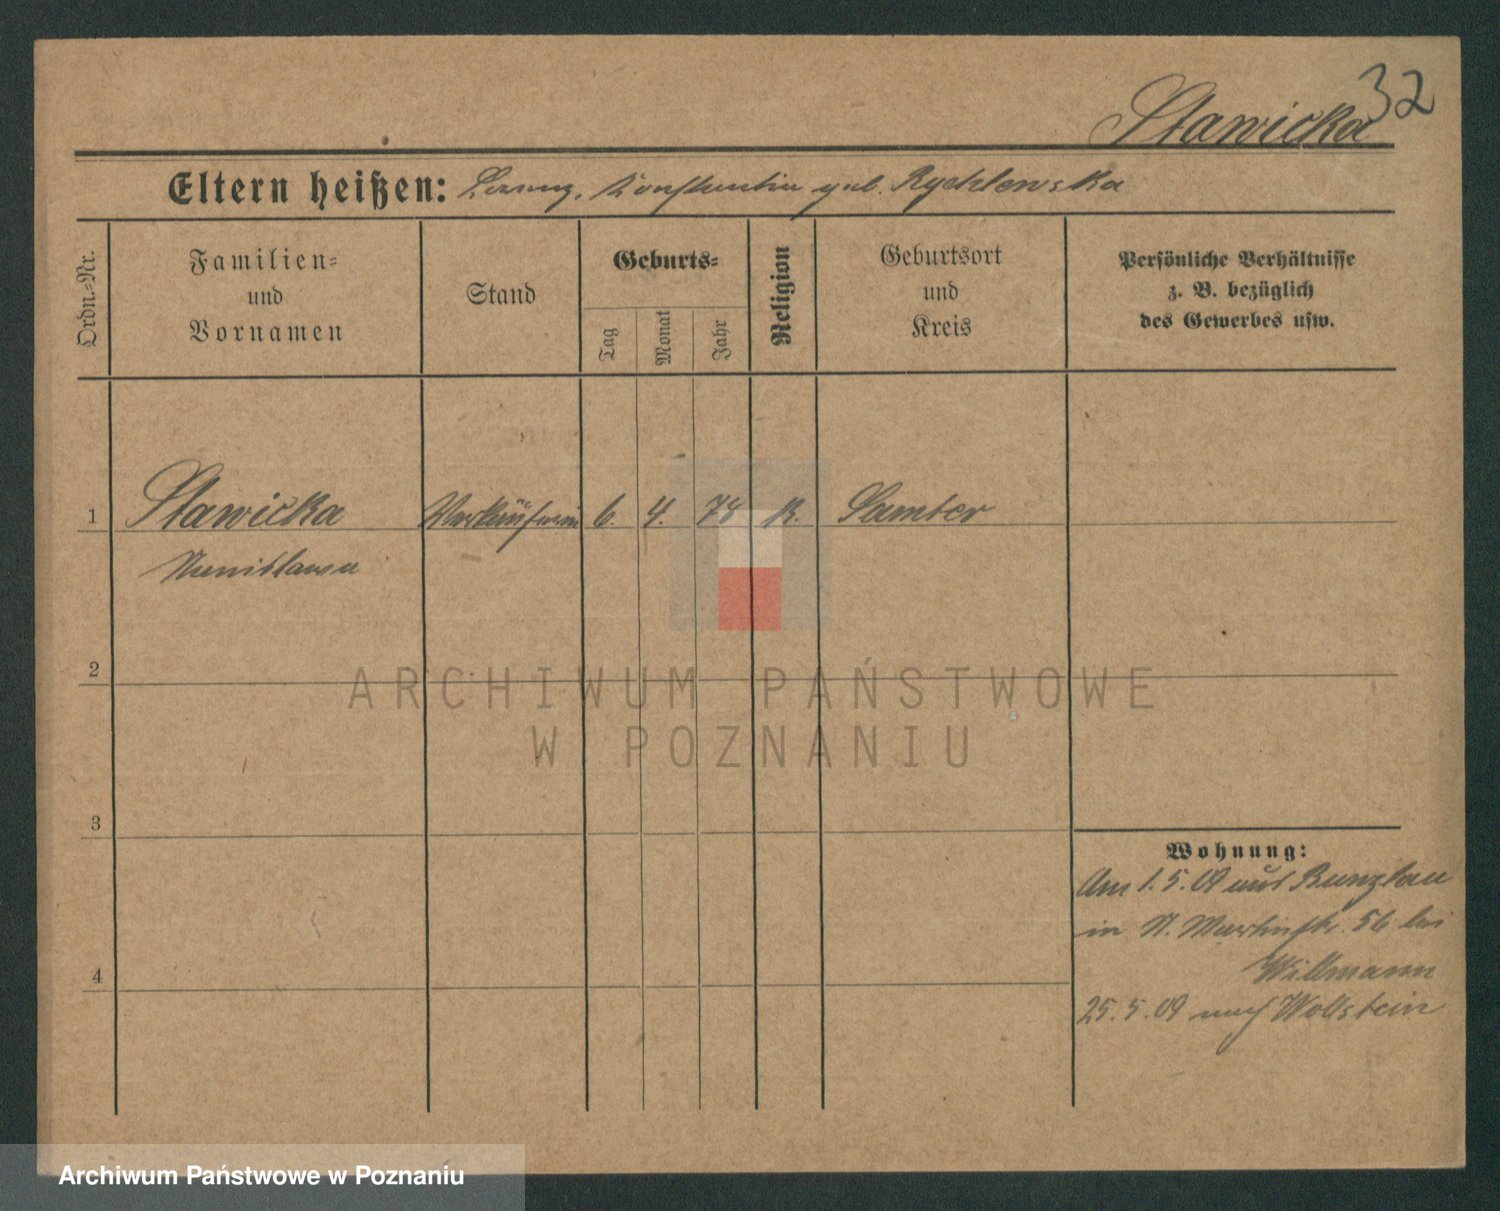 32
Stawicka
Eltern heißen: Lorenz, Konstantia geb. Rychlewska
Ordn.-Nr.
Familien-
und
Vornamen
Stand
Geburts-
Tag
Monat
Jahr
Religion
Geburtsort
und
Kreis
Persönliche Verhältnisse
z. B. bezüglich
des Gewerbes usw.
1 Stawicka Verkäuferin 6. 4. 78 K. Samter
2
3
4
Wohnung:
Am 1.5.09 aus Bunzlau
in St. Martinstr. 56 bei
Willmann
25.5.09 nach Wollstein
ARCHIWUM PAŃSTWOWE
W POZNANIU
Archiwum Państwowe w Poznaniu